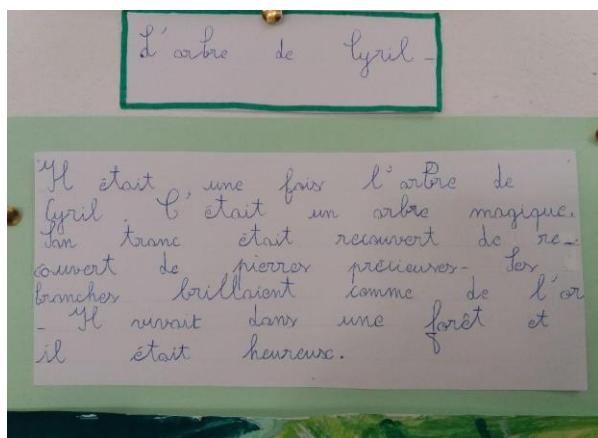 L'arbre de Cyril -
Il était une fois l'arbre de
Cyril. C'était un arbre magique.
Son tronc était recouvert de re-
couvert de pierres précieuses - Ses
branches brillaient comme de l'or
- Il vivait dans une forêt et
il était heureux.